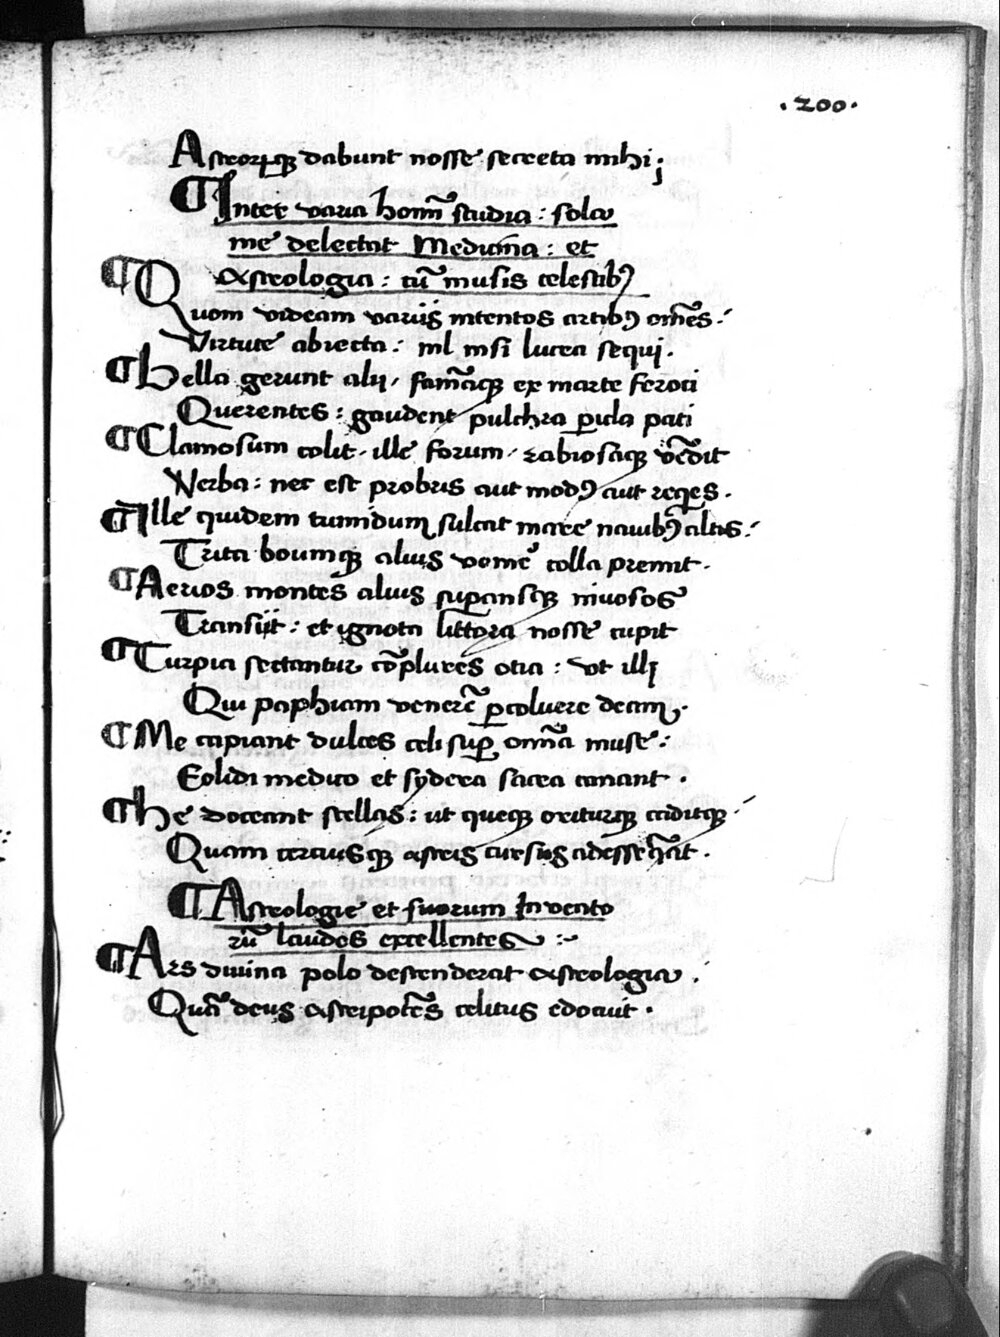 ·200·
Astrorūq; dabunt nosse secreta mihi;
¶ Inter varia homīn studia: sola
me delectat Medicina: et
Astrologia: cū musis celestibꝰ
¶ Quom videam variis intentos artibꝰ om̄es:
Virtute abiecta: nil nisi lucra sequi.
¶ bella gerunt alij, famāq; ex marte feroci
Querentes: gaudent pulchra ꝑicla pati
¶ Clamosum colit, ille forum, rabiosaq; vēdit
Verba: nec est probris aut modꝰ aut reqes.
¶ Ille quidem tumidum sulcat mare nauibꝰ altis:
Trita boumq; alius vome colla premit.
¶ Aerios montes alius supansq; niuosos
Transijt: et ignota littora nosse cupit
¶ Turpia sectantur cōplures otia: vt illj
Qui paphiam venerē ꝑcoluere deam.
¶ Me capiant dulces celi suꝑ om̄ia muse:
Eolidi medico et sydera sacra canant.
¶ he doceant stellas: ut queq; oriturq; caditq;
Quam certiusq; astris cursus adesse
¶ Astrologie et suorum Invento
rū laudes excellentes :~
¶ Ars diuina polo descenderat astrologia.
Quā deus astripotēs celitus edocuit.